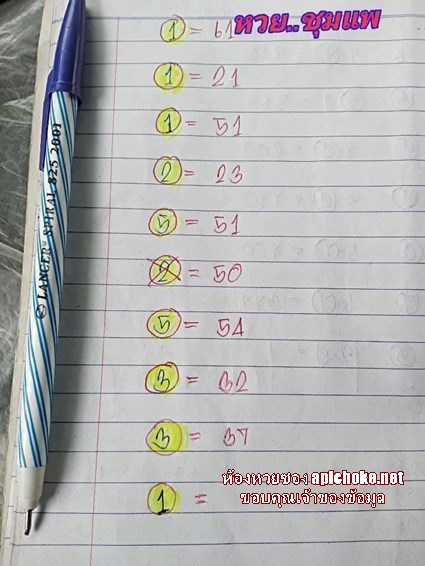 หวย..ชุมแพ
1 = 61
1 = 21
1 = 51
2 = 23
5 = 51
2 = 50
5 = 54
3 = 32
3 = 37
1 =
© LANCER SPIRAL 825 2001
ห้องหวยของ apichoke.net
ขอบคุณเจ้าของข้อมูล